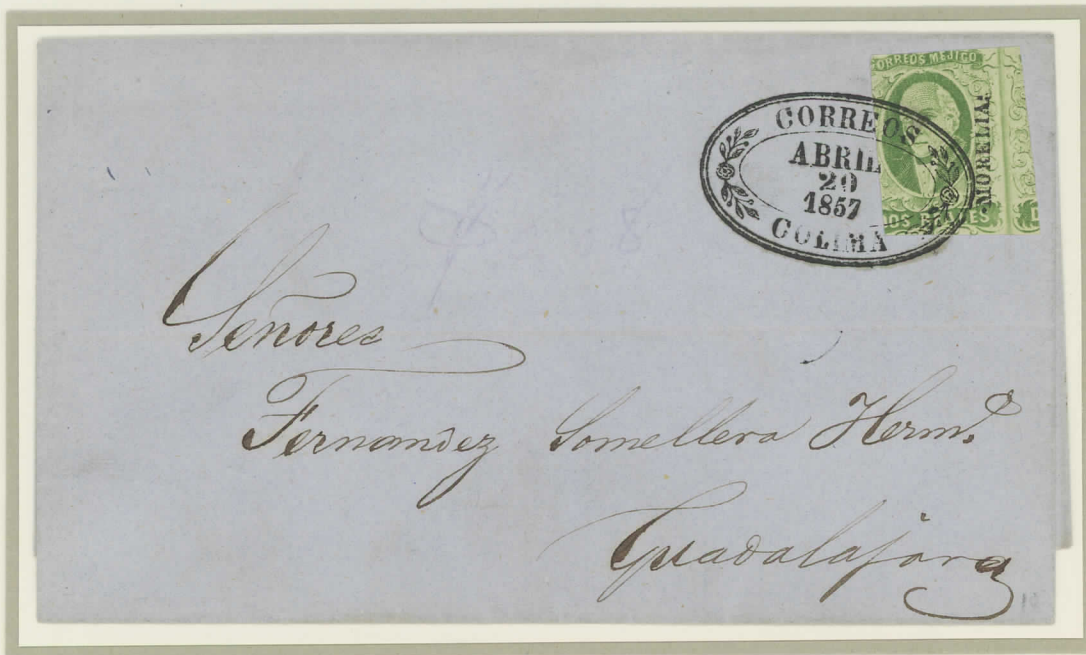 CORREOS MEJICO
MORELIA
DOS REALES
CORREOS
ABRIL
20
1857
COLIMA
Señores
Fernandez Somellera Herms.
Guadalajara